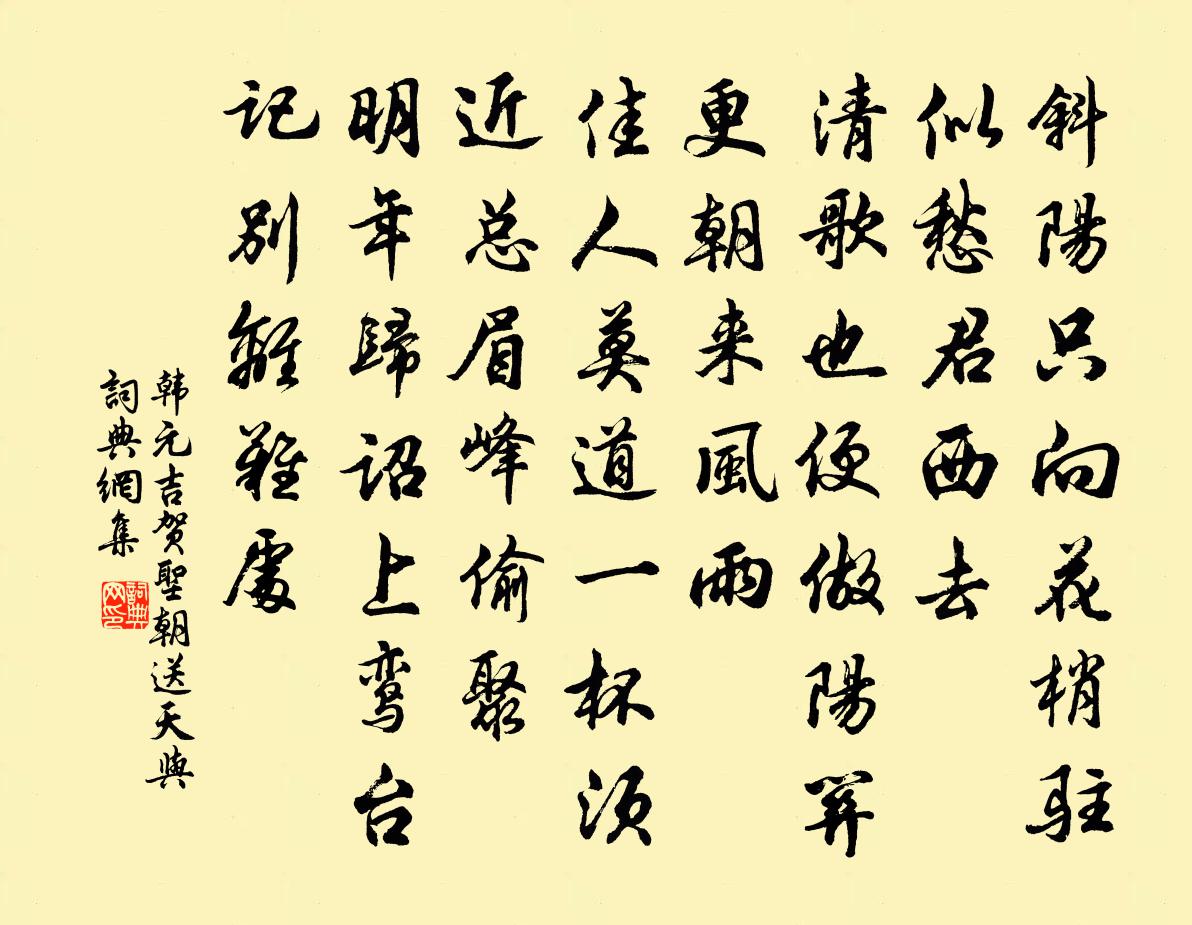 斜陽只向花梢駐
似愁君西去
清歌也便做陽關
更朝来風雨
佳人莫道一杯须
近总眉峰偷聚
明年歸詔上鸾台
記别離難處
韩元吉贺聖朝送天與
詞典網集
詞典网印